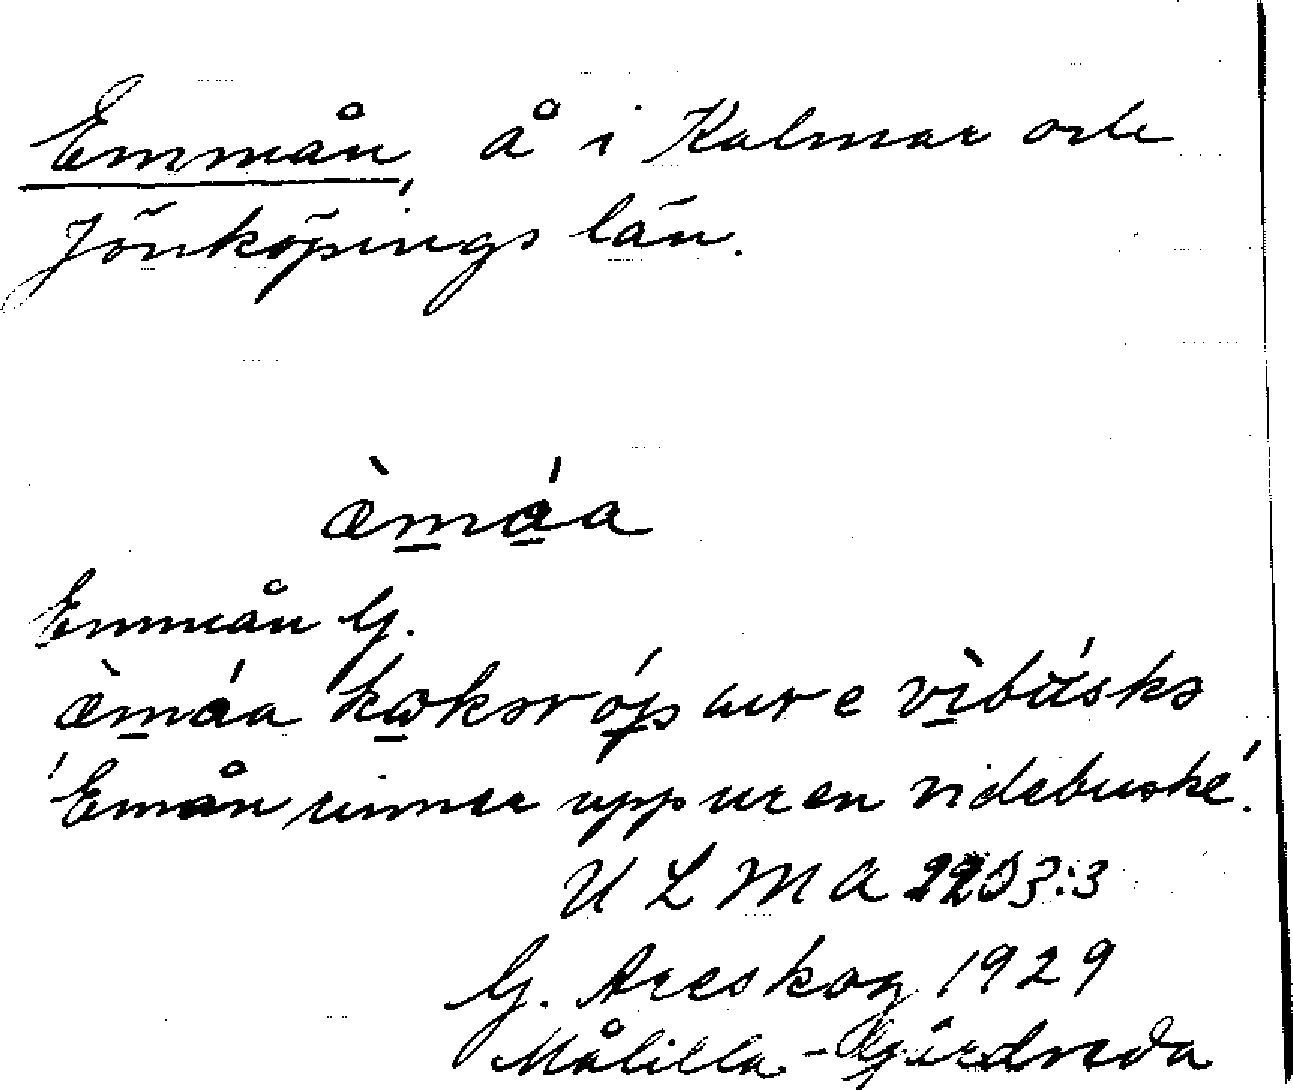 Emmån, å i Kalmar och
Jönköpings län.
æ̀m̲á̲a
Emmån G.
æ̀m̲áa vibúskə
'Emån rinner upp ur en videbuske'.
U L M A 2253:3
G. Areskog 1929
Målilla - Gårdveda